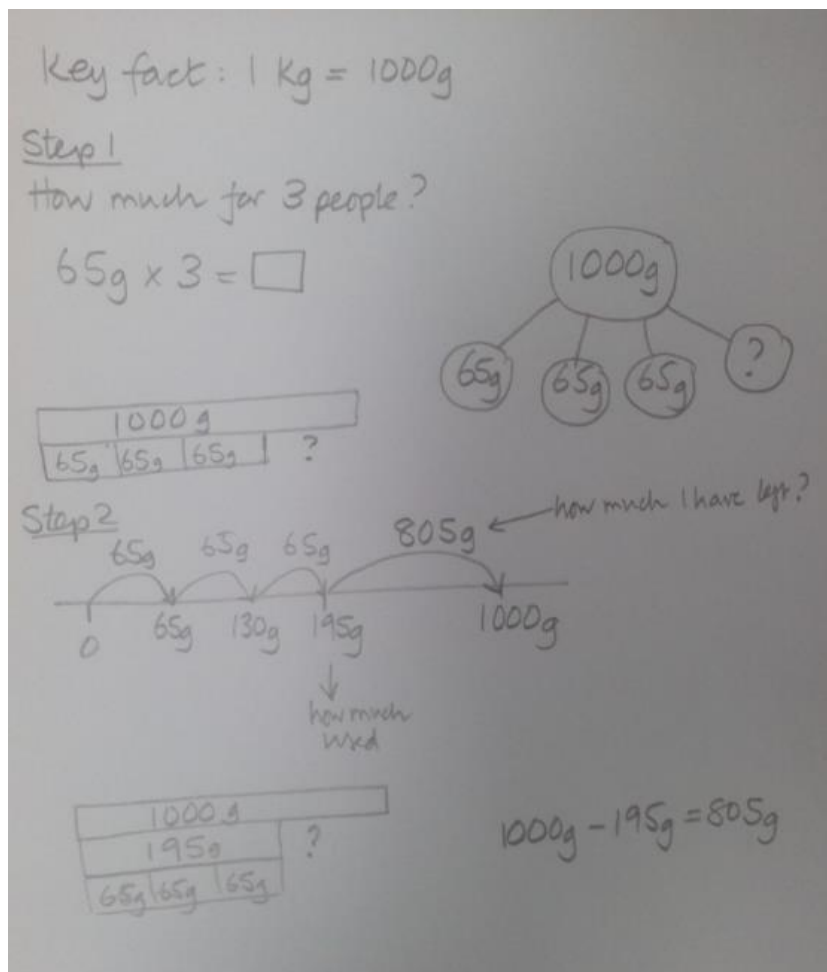 Key fact: 1 Kg = 1000g
Step 1
How much for 3 people?
65g × 3 = □
1000g
65g 65g 65g ?
1000g
65g 65g 65g ?
Step 2
how much I have left?
805g
65g 65g 65g
0 65g 130g 195g 1000g
how much
used
1000g
195g ?
65g 65g 65g
1000g - 195g = 805g